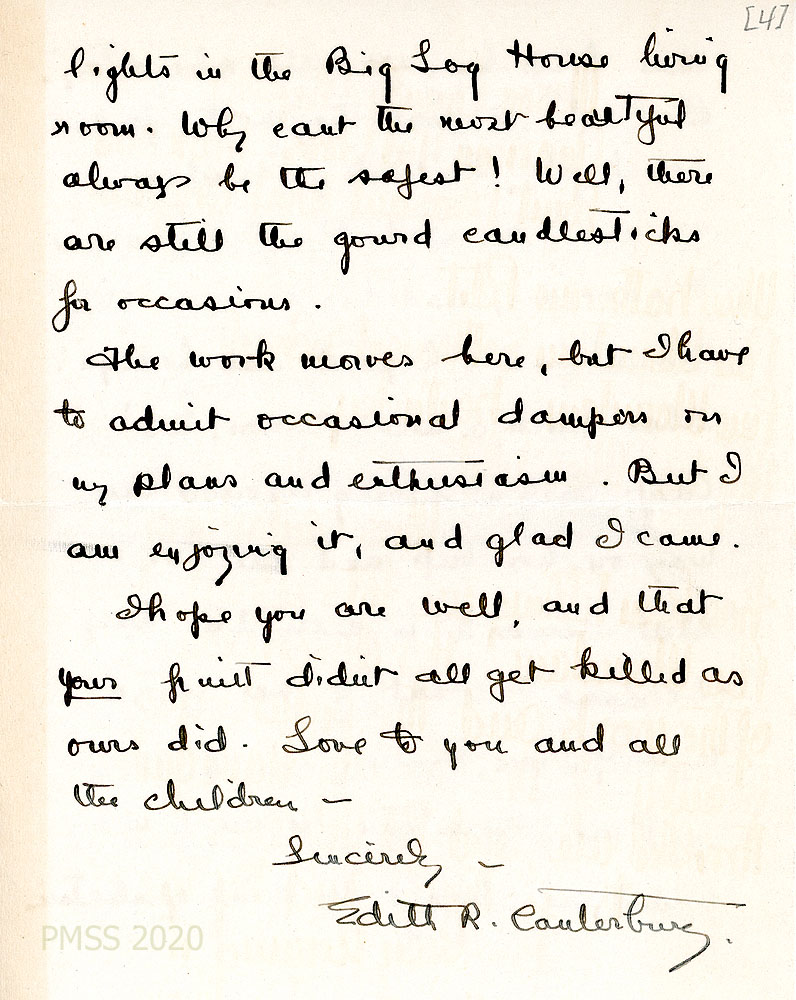 [4]
lights in the Big Log House living
room. Why cant the most beautiful
always be the safest! Well, there
are still the gourd candlesticks
for occasions.
The work moves here, but I have
to admit occasional dampers on
my plans and enthusiasm. But I
am enjoying it, and glad I came.
I hope you are well, and that
your fruit didn't all get killed as
ours did. Love to you and all
the children —
Sincerely —
Edith R. Canterbury.
PMSS 2020